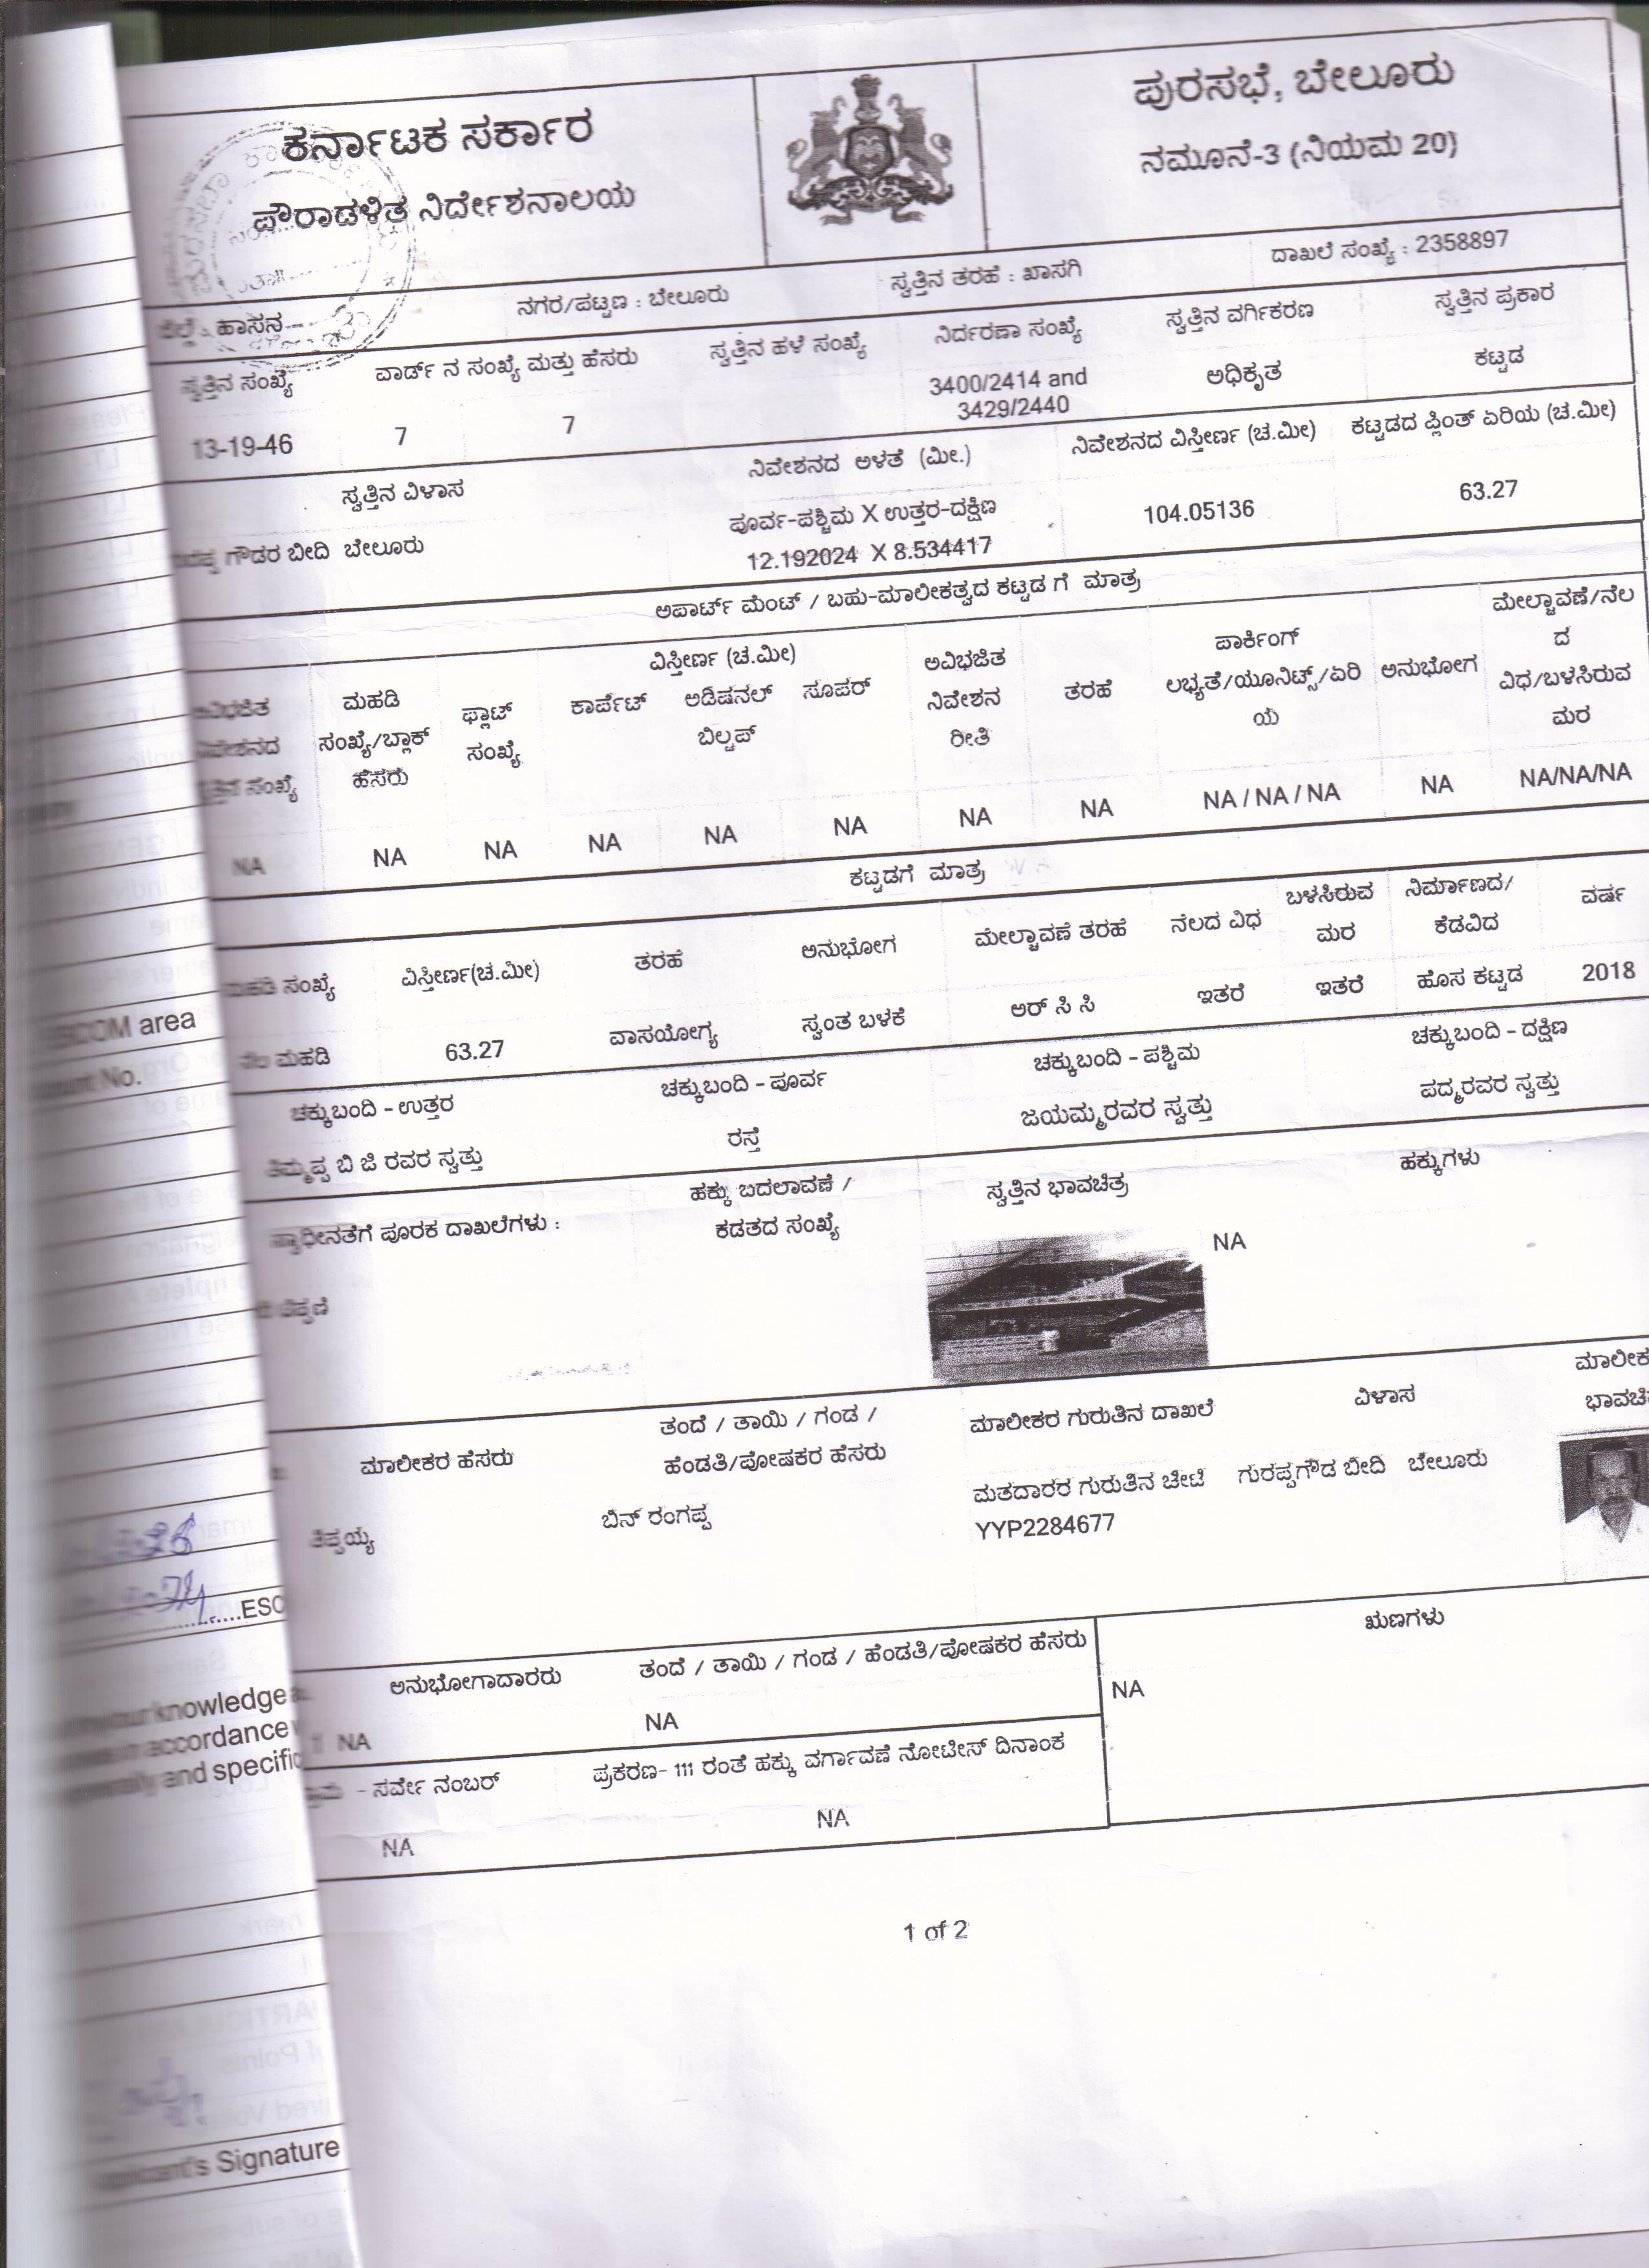 ಕರ್ನಾಟಕ ಸರ್ಕಾರ
ಪೌರಾಡಳಿತ ನಿರ್ದೇಶನಾಲಯ
ಪುರಸಭೆ, ಬೇಲೂರು
ನಮೂನೆ-3 (ನಿಯಮ 20)
ಜಿಲ್ಲೆ : ಹಾಸನ ನಗರ/ಪಟ್ಟಣ : ಬೇಲೂರು ಸ್ವತ್ತಿನ ತರಹೆ : ಖಾಸಗಿ ದಾಖಲೆ ಸಂಖ್ಯೆ : 2358897
ಸ್ವತ್ತಿನ ಸಂಖ್ಯೆ ವಾರ್ಡ್ ನ ಸಂಖ್ಯೆ ಮತ್ತು ಹೆಸರು ಸ್ವತ್ತಿನ ಹಳೆ ಸಂಖ್ಯೆ ನಿರ್ದರಣಾ ಸಂಖ್ಯೆ ಸ್ವತ್ತಿನ ವರ್ಗಿಕರಣ ಸ್ವತ್ತಿನ ಪ್ರಕಾರ
13-19-46 7 7 3400/2414 and ಅಧಿಕೃತ ಕಟ್ಟಡ
3429/2440
ಸ್ವತ್ತಿನ ವಿಳಾಸ ನಿವೇಶನದ ಅಳತೆ (ಮೀ.) ನಿವೇಶನದ ವಿಸ್ತೀರ್ಣ (ಚ.ಮೀ) ಕಟ್ಟಡದ ಪ್ಲಿಂತ್ ಏರಿಯ (ಚ.ಮೀ)
ಗೌಡರ ಬೀದಿ ಬೇಲೂರು ಪೂರ್ವ-ಪಶ್ಚಿಮ X ಉತ್ತರ-ದಕ್ಷಿಣ 104.05136 63.27
12.192024 X 8.534417
ಅಪಾರ್ಟ್ ಮೆಂಟ್ / ಬಹು-ಮಾಲೀಕತ್ವದ ಕಟ್ಟಡ ಗೆ ಮಾತ್ರ
ವಿಸ್ತೀರ್ಣ (ಚ.ಮೀ) ಮೇಲ್ಚಾವಣೆ/ನೆಲ
ಅವಿಭಜಿತ ಮಹಡಿ ಫ್ಲಾಟ್ ಕಾರ್ಪೆಟ್ ಅಡಿಷನಲ್ ಸೂಪರ್ ಅವಿಭಜಿತ ತರಹೆ ಪಾರ್ಕಿಂಗ್ ಅನುಭೋಗ ದ
ನಿವೇಶನದ ಸಂಖ್ಯೆ/ಬ್ಲಾಕ್ ಸಂಖ್ಯೆ ಬಿಲ್ಟಪ್ ನಿವೇಶನ ಲಭ್ಯತೆ/ಯೂನಿಟ್ಸ್/ಏರಿ ವಿಧ/ಬಳಸಿರುವ
ಸ್ವತ್ತಿನ ಸಂಖ್ಯೆ ಹೆಸರು ರೀತಿ ಯ ಮರ
NA NA NA NA NA NA NA NA NA / NA / NA NA NA/NA/NA
ಕಟ್ಟಡಗೆ ಮಾತ್ರ
ಮಹಡಿ ಸಂಖ್ಯೆ ವಿಸ್ತೀರ್ಣ(ಚ.ಮೀ) ತರಹೆ ಅನುಭೋಗ ಮೇಲ್ಚಾವಣೆ ತರಹೆ ನೆಲದ ವಿಧ ಬಳಸಿರುವ ನಿರ್ಮಾಣದ/ ವರ್ಷ
ಮರ ಕೆಡವಿದ
ನೆಲ ಮಹಡಿ 63.27 ವಾಸಯೋಗ್ಯ ಸ್ವಂತ ಬಳಕೆ ಆರ್ ಸಿ ಸಿ ಇತರೆ ಇತರೆ ಹೊಸ ಕಟ್ಟಡ 2018
ಚಕ್ಕುಬಂದಿ - ಉತ್ತರ ಚಕ್ಕುಬಂದಿ - ಪೂರ್ವ ಚಕ್ಕುಬಂದಿ - ಪಶ್ಚಿಮ ಚಕ್ಕುಬಂದಿ - ದಕ್ಷಿಣ
ತಿಮ್ಮಪ್ಪ ಬಿ ಜಿ ರವರ ಸ್ವತ್ತು ರಸ್ತೆ ಜಯಮ್ಮರವರ ಸ್ವತ್ತು ಪದ್ಮರವರ ಸ್ವತ್ತು
ಸ್ವಾಧೀನತೆಗೆ ಪೂರಕ ದಾಖಲೆಗಳು : ಹಕ್ಕು ಬದಲಾವಣೆ / ಸ್ವತ್ತಿನ ಭಾವಚಿತ್ರ ಹಕ್ಕುಗಳು
ಕಡತದ ಸಂಖ್ಯೆ
NA
ಮಾಲೀಕರ ಹೆಸರು ತಂದೆ / ತಾಯಿ / ಗಂಡ / ಮಾಲೀಕರ ಗುರುತಿನ ದಾಖಲೆ ವಿಳಾಸ
ಹೆಂಡತಿ/ಪೋಷಕರ ಹೆಸರು
ತಿಪ್ಪಯ್ಯ ಬಿನ್ ರಂಗಪ್ಪ ಮತದಾರರ ಗುರುತಿನ ಚೀಟಿ ಗುರಪ್ಪಗೌಡ ಬೀದಿ ಬೇಲೂರು
YYP2284677
ಅನುಭೋಗಾದಾರರು ತಂದೆ / ತಾಯಿ / ಗಂಡ / ಹೆಂಡತಿ/ಪೋಷಕರ ಹೆಸರು ಋಣಗಳು
1 NA NA NA
- ಸರ್ವೇ ನಂಬರ್ ಪ್ರಕರಣ- 111 ರಂತೆ ಹಕ್ಕು ವರ್ಗಾವಣೆ ನೋಟೀಸ್ ದಿನಾಂಕ
NA NA
1 of 2
area
No.
ESC
knowledge
accordance
and specific
Signature